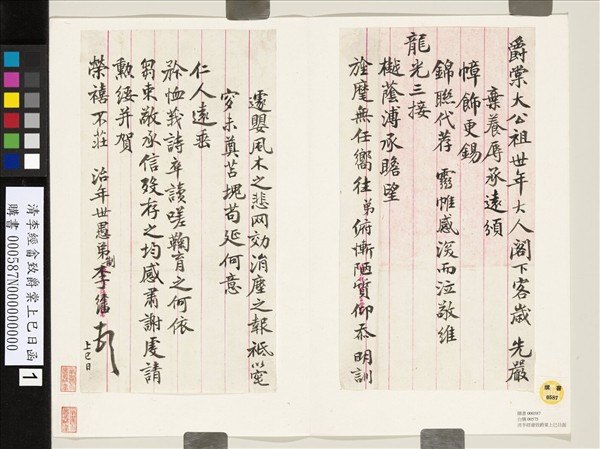 爵棠大公祖世年大人閣下客歲 先嚴
棄養辱承遠頒
幛飾更錫
錦聯代荐 靈帷感浚而泣敬維
龍光三接
樾蔭溥承瞻望
旌麾無任嚮往 弟俯慚陋質仰忝 明訓
遽嬰風木之悲罔効涓塵之報祗以窀
穸未奠苫塊苟延何意
仁人遠垂
矜恤莪詩卒讀嗟鞠育之何依
芻束敬承信歿存之均感肅謝虔請
勳綏并賀
榮禧不莊 治年世愚弟制李經畬
上巳日
清李經畬致爵棠上巳日函
購書 000587N000000000
1
購書
0587
購書 000587